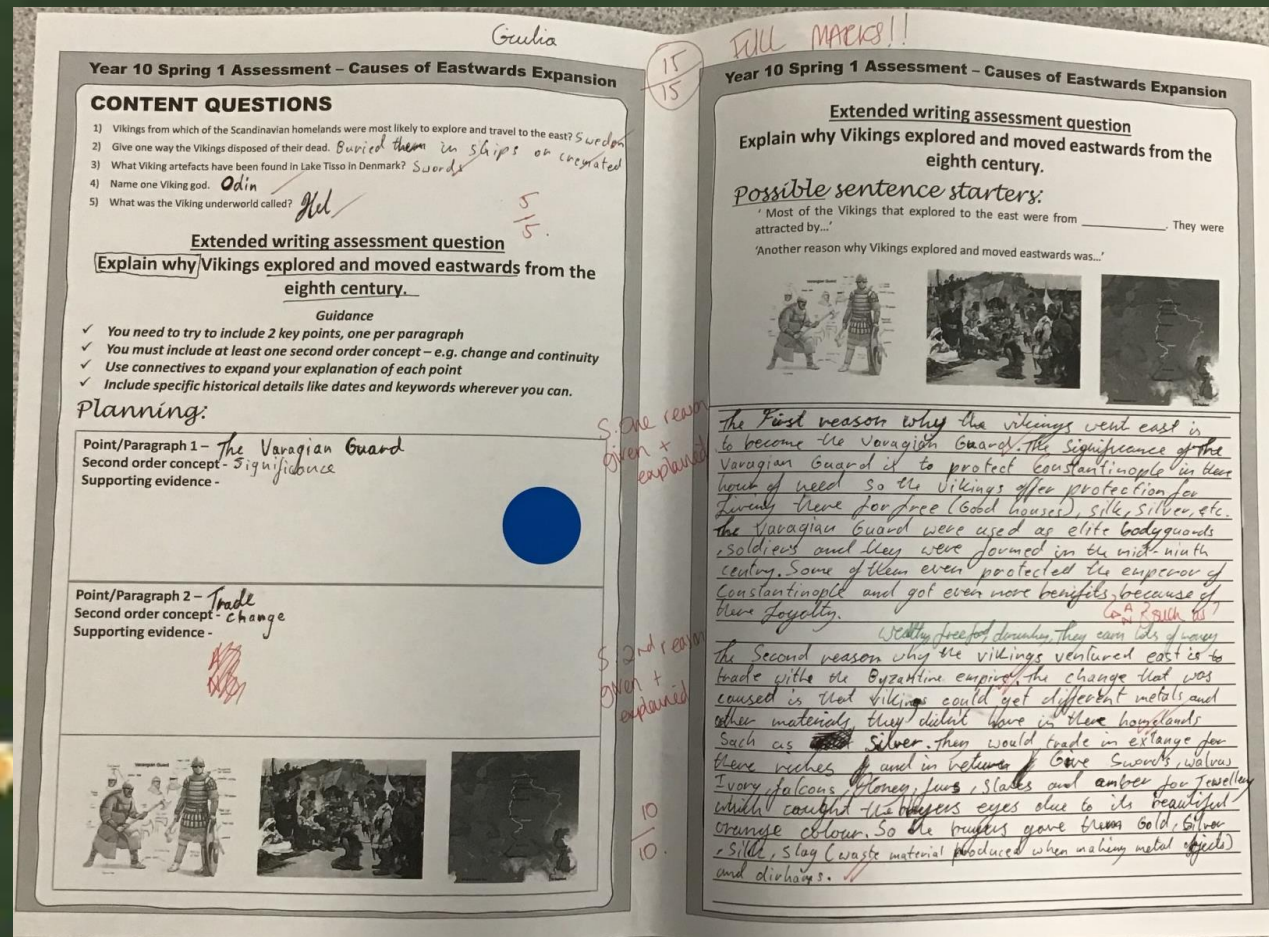 Giulia
Year 10 Spring 1 Assessment – Causes of Eastwards Expansion
CONTENT QUESTIONS
1) Vikings from which of the Scandinavian homelands were most likely to explore and travel to the east? Sweden
2) Give one way the Vikings disposed of their dead. Buried them in ships or cremated
3) What Viking artefacts have been found in Lake Tisso in Denmark? Swords
4) Name one Viking god. Odin
5) What was the Viking underworld called? Hel
5
5.
Extended writing assessment question
Explain why Vikings explored and moved eastwards from the
eighth century.
Guidance
✓ You need to try to include 2 key points, one per paragraph
✓ You must include at least one second order concept – e.g. change and continuity
✓ Use connectives to expand your explanation of each point
✓ Include specific historical details like dates and keywords wherever you can.
Planning:
Point/Paragraph 1 – The Varagian Guard
Second order concept - Significance
Supporting evidence -
Point/Paragraph 2 – Trade
Second order concept - change
Supporting evidence -
S: One reason
given +
explained
S: 2nd reason
given +
explained
10
10.
15
15
FULL MARKS!!
Year 10 Spring 1 Assessment – Causes of Eastwards Expansion
Extended writing assessment question
Explain why Vikings explored and moved eastwards from the
eighth century.
Possible sentence starters:
' Most of the Vikings that explored to the east were from ____________. They were
attracted by...'
'Another reason why Vikings explored and moved eastwards was...'
The First reason why the vikings went east is
to become the Varagian Guard. The Significance of the
Varagian Guard is to protect Constantinople in there
hour of need so the vikings offer protection for
Living there for free (Good houses), silk, silver, etc.
The Varagian Guard were used as elite bodyguards
, soldiers and they were formed in the mid-ninth
centry. Some of them even protected the emperor of
Constantinople and got even more benefits, because of
there Loyalty.
such as?
They earn lots of money
The Second reason why the vikings ventured east is to
trade withe the Byzantine empire. The change that was
caused is that vikings could get different metals and
other materials they didn't have in there homelands
Such as Silver. Then would trade in exlange for
there riches and in return Gave Swords, walrus
Ivory, falcons, Honey, furs, slaves and amber for Jewellery
which caught the buyers eyes due to its beautiful
orange colour. So the buyers gave them Gold, Silver
, Silk, slag (waste material produced when making metal objects)
and dirhams.